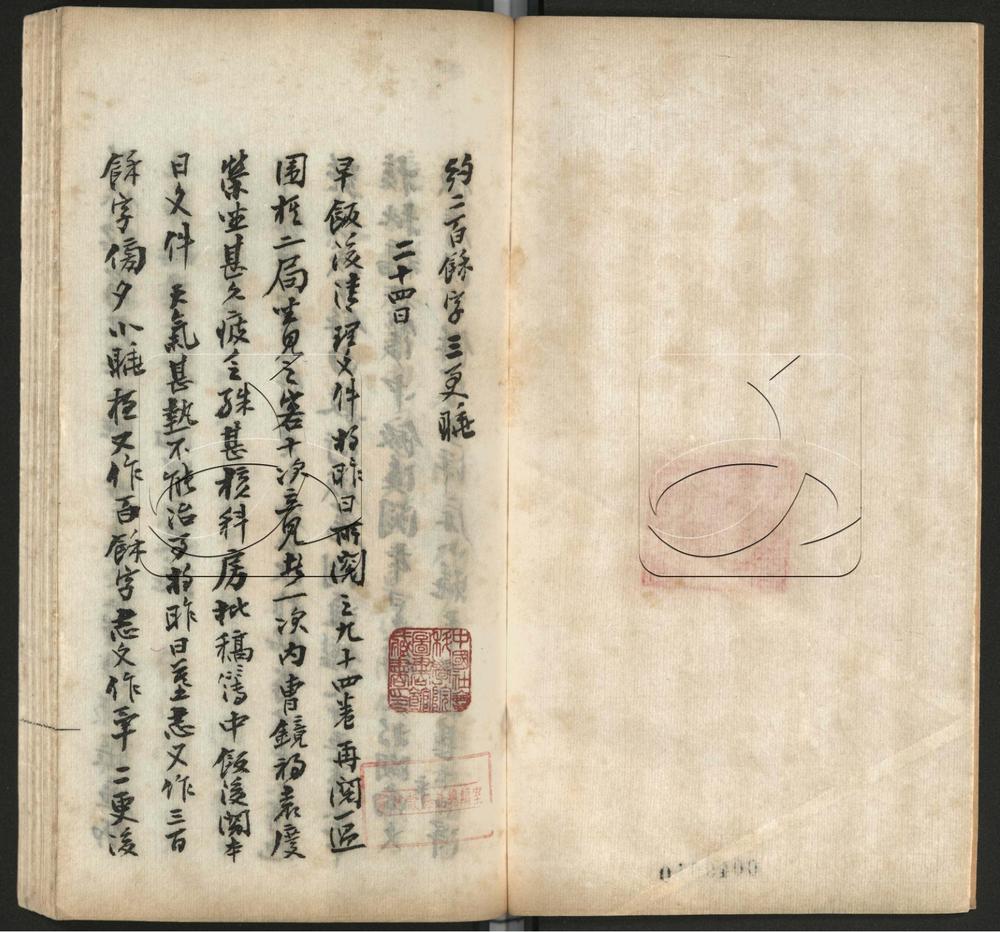 約二百餘字三更睡
二十四日
早飯後清理文件將昨日所閱之九十四卷再閱一過
圍棋二局坐見之客十次立見者一次內曹鏡初袁度
榮坐甚久疲乏殊甚核科房批稿簿中飯後閱本
日文件天氣甚熱不能治事將昨日墓志又作三百
餘字傍夕小睡夜又作百餘字志文作畢二更後
中國社會科學院圖書館藏書之印